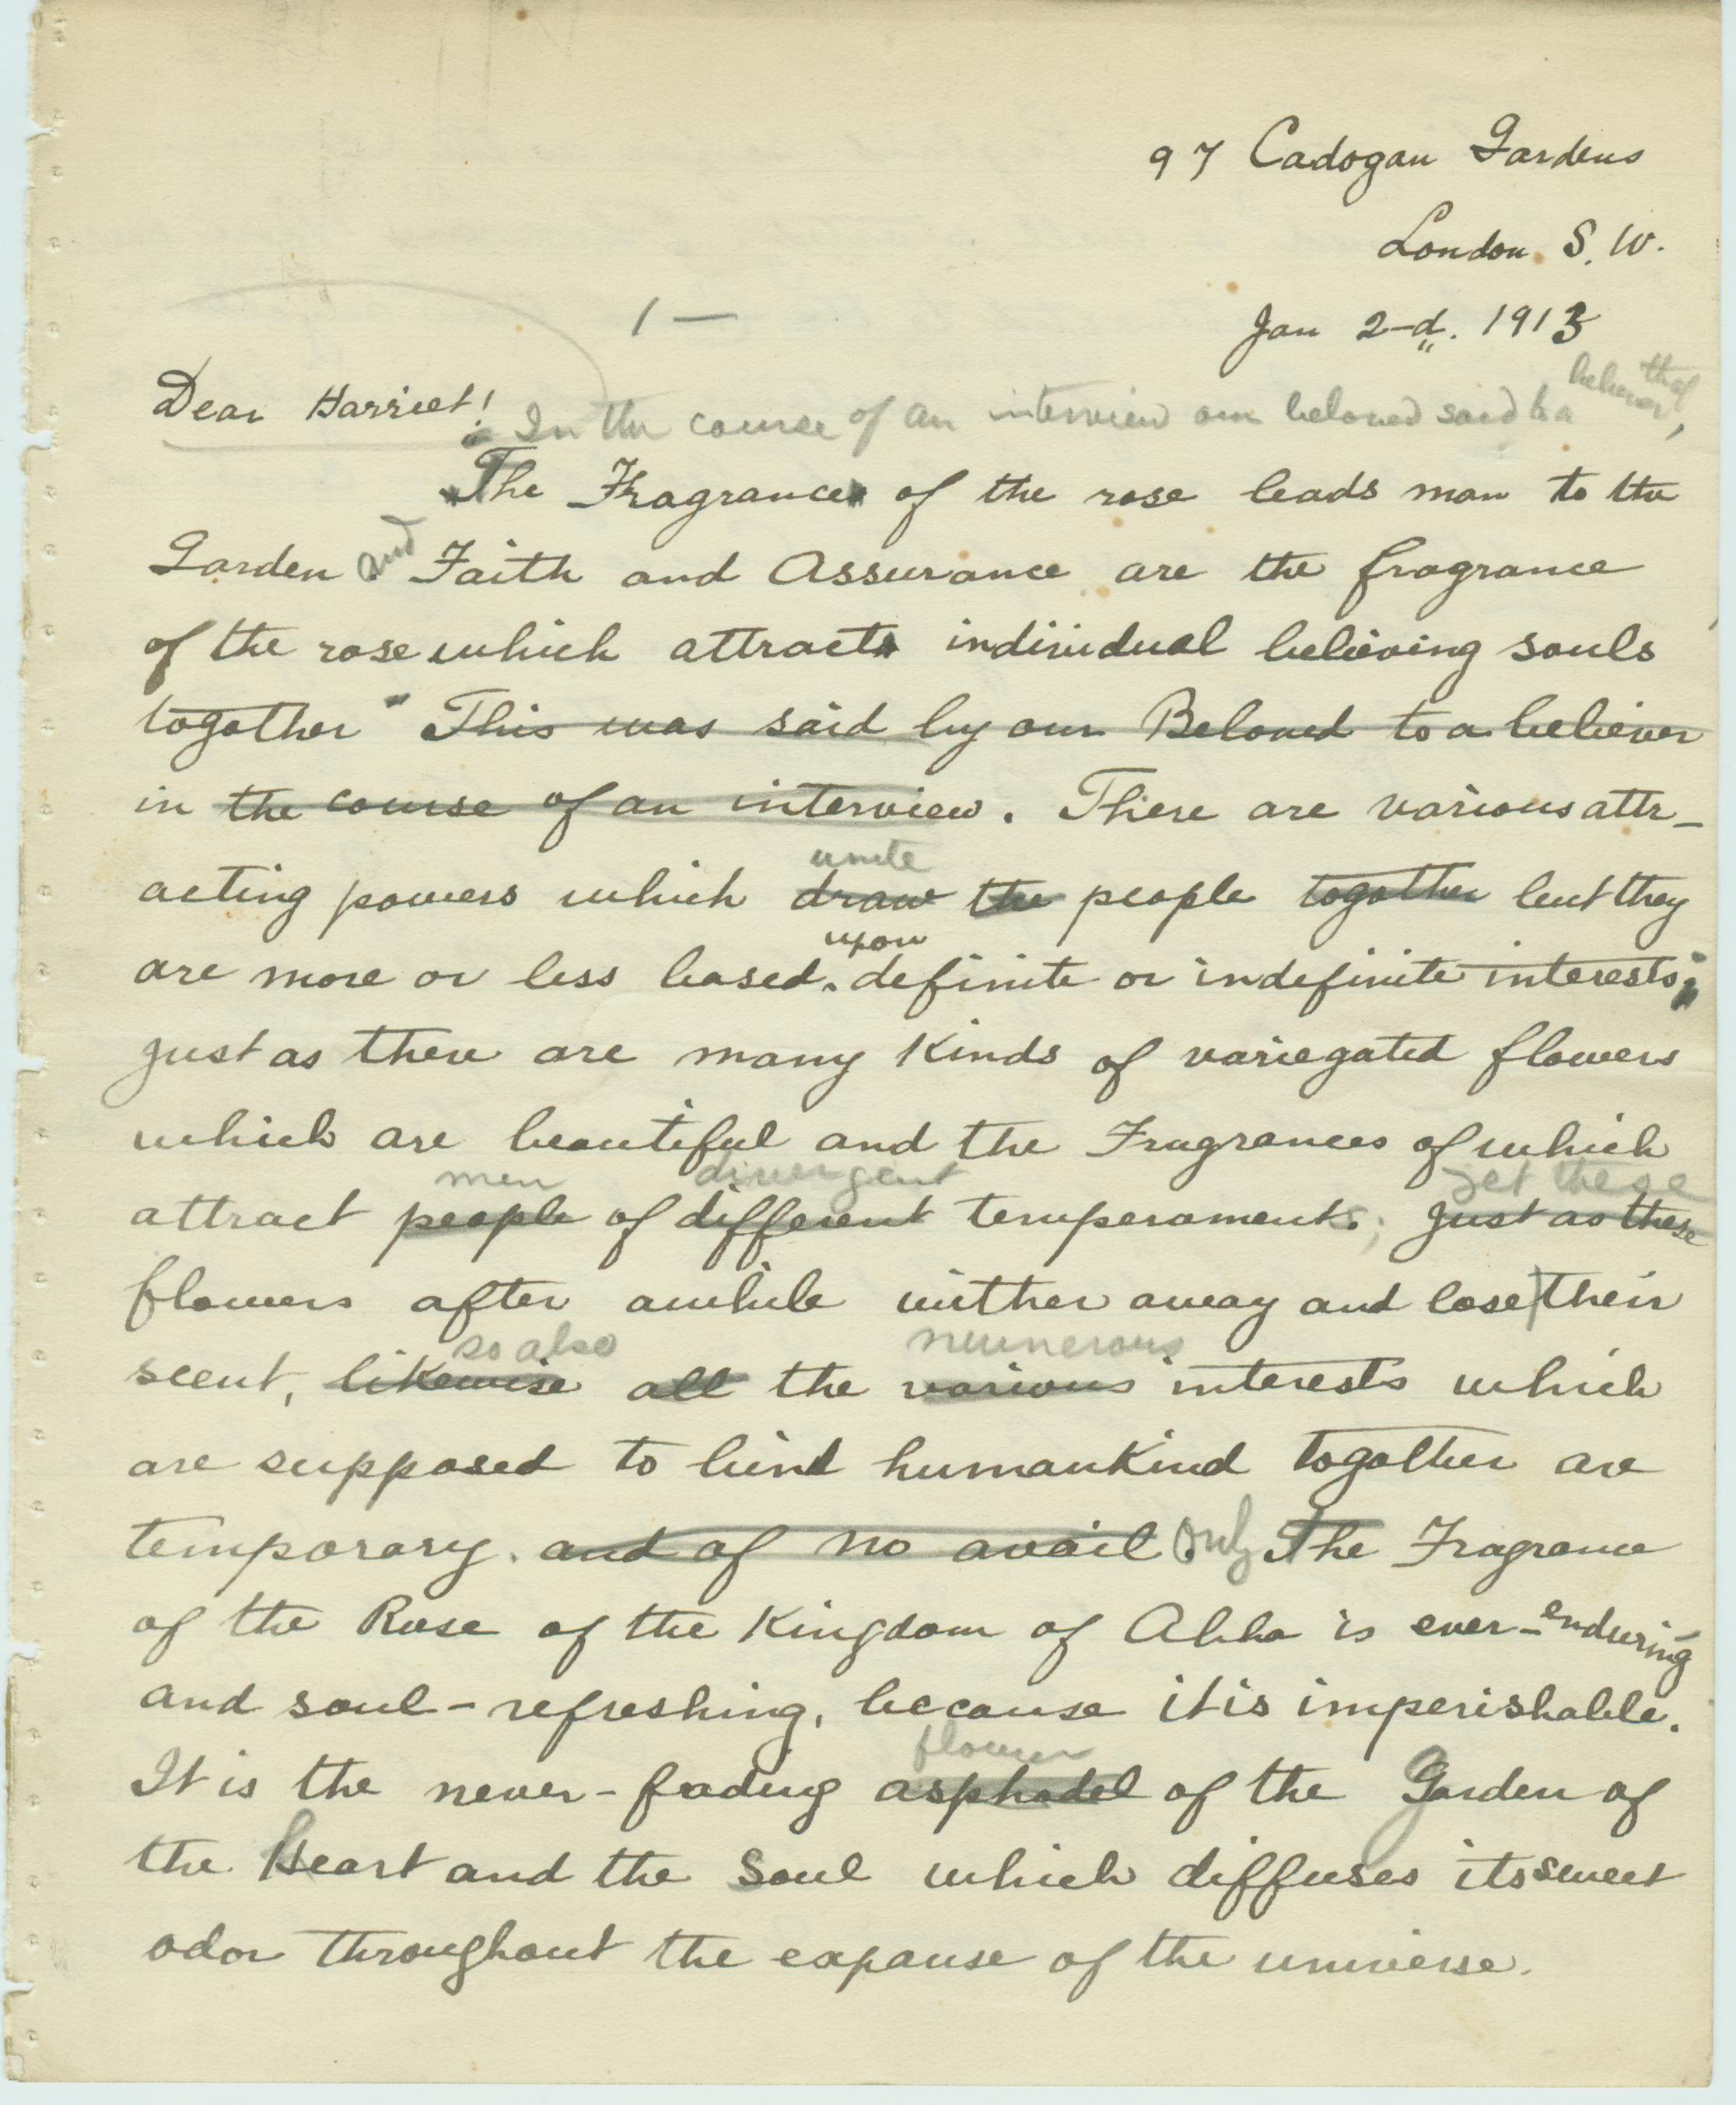 97 Cadogan Gardens
London. S. W.
Jan 2-d. 1913
1 —
Dear Harriet!
In the course of an interview our beloved said to a believer, that
"The Fragrance of the rose leads man to the
Garden and Faith and Assurance are the fragrance
of the rose which attract individual believing souls
together" This was said by our Beloved to a believer
in the course of an interview. There are various attr-
unite
acting powers which draw the people together but they
upon
are more or less based. definite or indefinite interests;
just as there are many kinds of variegated flowers
which are beautiful and the Fragrances of which
men divergent yet these
attract people of different temperaments; just as these
flowers after awhile wither away and lose their
so also numerous
scent, likewise all the various interests which
are supposed to bind humankind together are
temporary. and of no avail. Only The Fragrance
of the Rose of the Kingdom of Abha is ever-enduring
and soul-refreshing, because it is imperishable.
flower
It is the never-fading asphodel of the Garden of
the Heart and the Soul which diffuses its sweet
odor throughout the expanse of the universe.